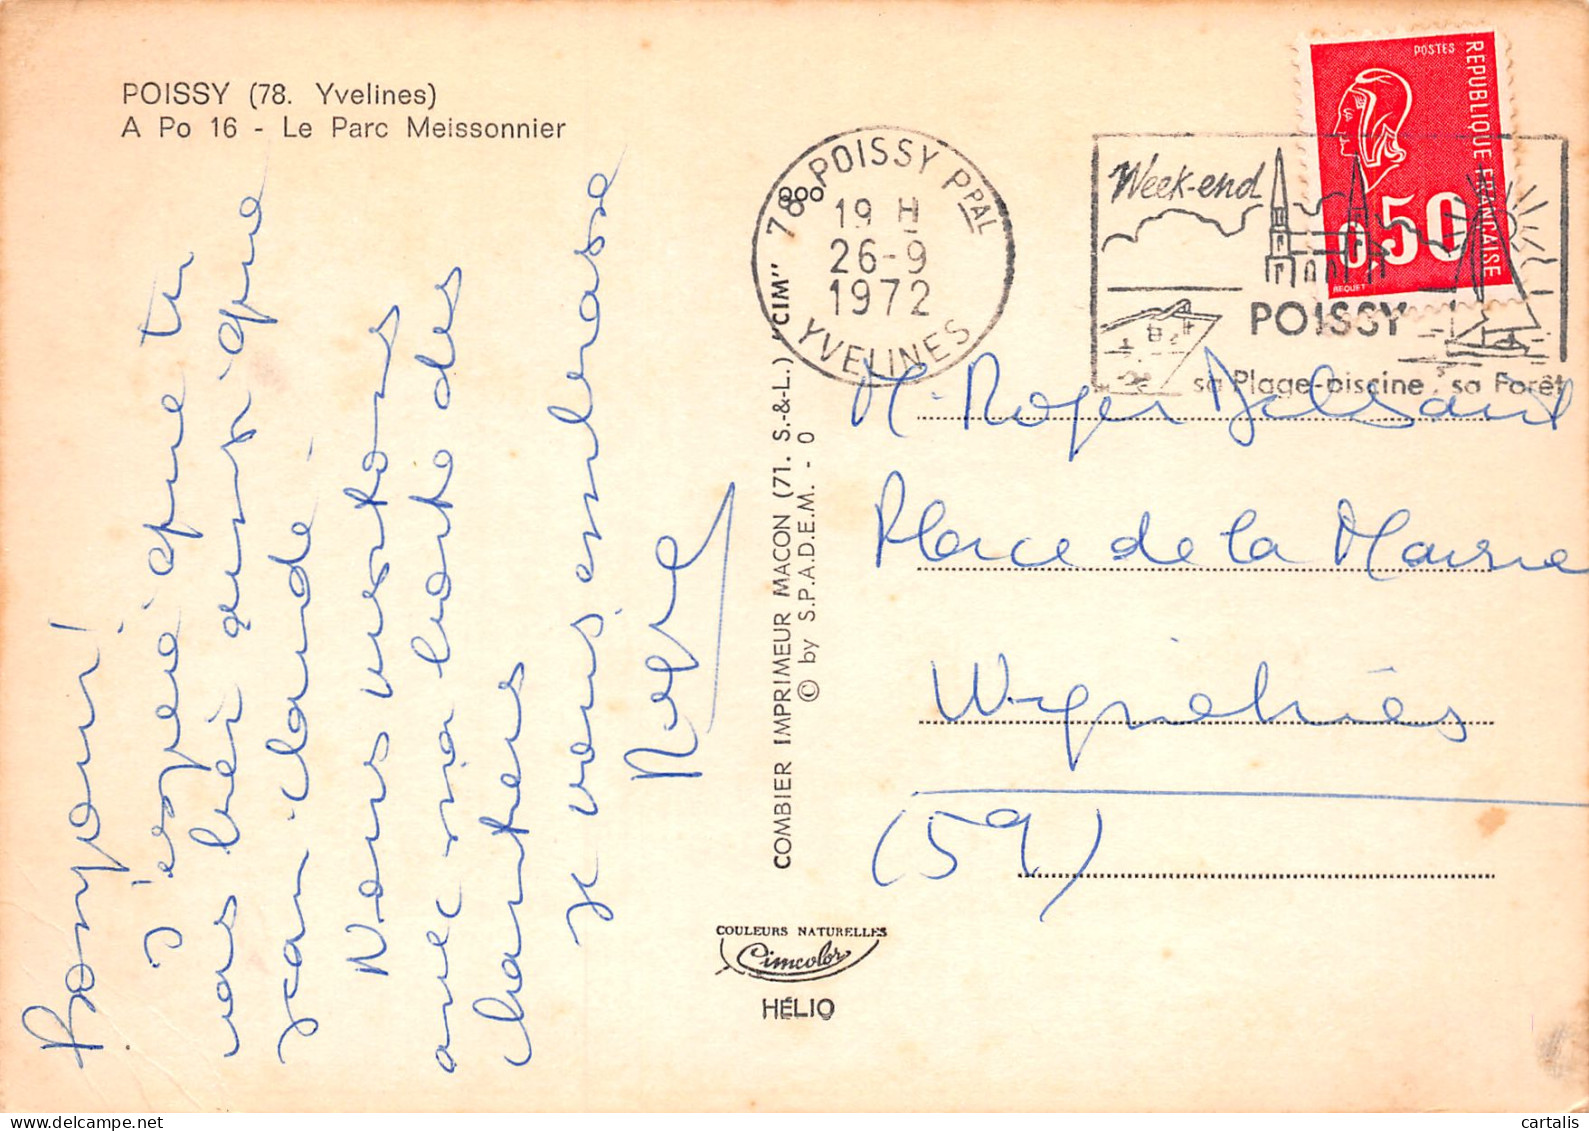 POISSY (78. Yvelines)
A Po 16 - Le Parc Meissonnier
Bonjour!
J'espère que tu
vas bien ainsi que
Jean-Claude.
Nous visitons
avec ma
chantiers
je vous embrasse
COMBIER IMPRIMEUR MACON (71. S.-&-L.) "CIM"
© by S.P.A.D.E.M. - 0
COULEURS NATURELLES
Cimcolor
HÉLIO
78 POISSY PPAL
19 H
26-9
1972
YVELINES
Week-end
POISSY
sa Plage-piscine, sa Forêt
POSTES
REPUBLIQUE FRANÇAISE
0,50
BEQUET
M. Roger
Place de la Mairie
Wignehies
(59)
cartalis